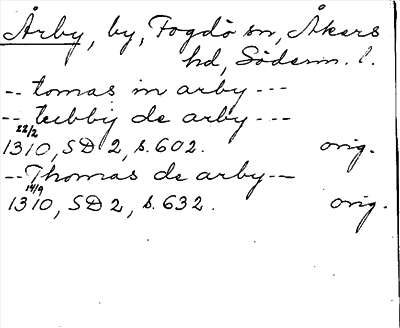 Årby, by, Fogdö sn, Åkers
hd, Söderm. l.
-- tomas in arby ---
-- tubbij de arby ---
22/2
1310, SD 2, s. 602. orig.
-- Thomas de arby --
14/9
1310, SD 2, s. 632. orig.